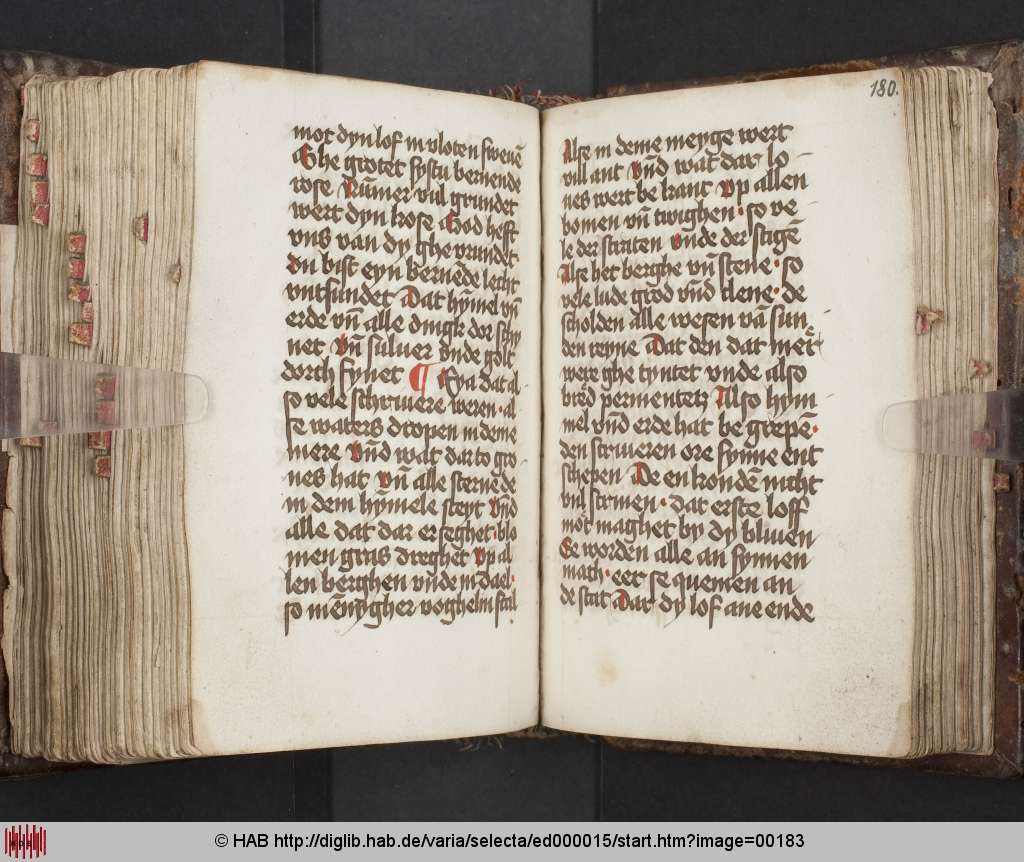 mot dyn lof in vloten swenē
Ghe grotet systu bernende
rose Nūmer vul grundet
wert dyn kose God heft
vns van dy ghe vrundet
du bist eyn bernēde lecht
vntfundet Dat hȳmel vn̄
erde vn̄ alle dingk dor schy
net vn̄ suluer vnde golt
dorch fynet ¶ Eya dat al
so vele schriuere weren · al
se waters dropen in deme
mere vn̄d wat dar to gro
nes hat vn̄ alle sternēde
in dem hȳmele steyt vn̄d
alle dat dar er seghet · blo
men gras dreghet vp al
len berghen vn̄de in dael ·
so mēnygher voghelin scal
180.
Alse in deme meyge wert
vill ant vn̄d wat dar lo-
ues wert be kant vp allen
bomen vn̄ twighen · so ve
le der straten vnde der stigē
Alse het berghe vn̄ stene · so
vele lude grod vn̄d klene · de
scholden alle wesen vā sun
den reyne Dat den dat mer
were ghe tyntet vnde also
bred permentes Also hym
mel vn̄d erde hat be grepē ·
den scriueren ore synne ent
schepen De en kondē nicht
vul scriuen · dat erste loff
mot maghet by dy bliuen
Se wordēn alle an synnen
math · eer se quemen an
de stat Dat dy lof ane ende
© HAB http://diglib.hab.de/varia/selecta/ed000015/start.htm?image=00183